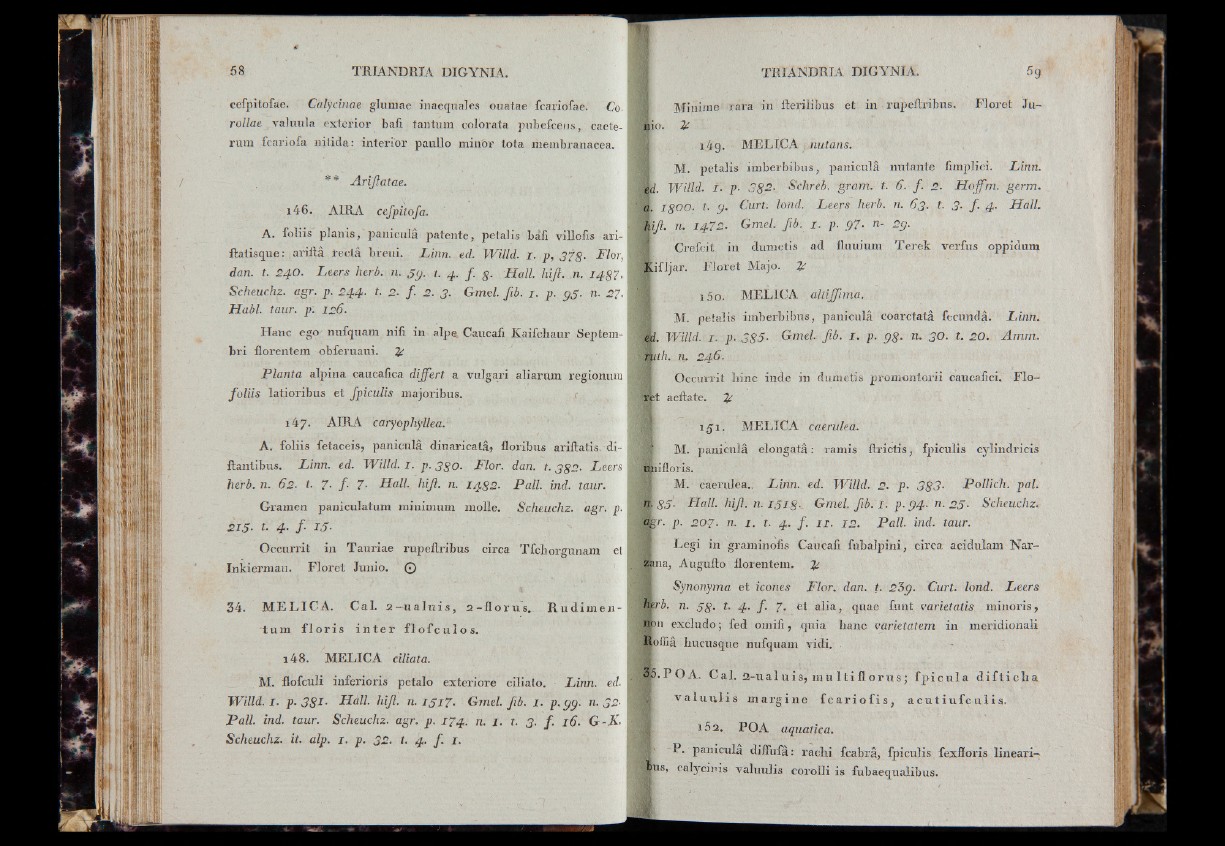 58 TRIANDRIA DIGYNIA.
cefpitofae. Calycinae glumae inaequales ouatae fcariofae. Co-
rollae valuula exterior bafi tantum colorata pubefcens, caete-
rum fcariofa nitida: interior paullo minor tota membranacea.
** Ariftatae.
146. AIRA cefpitofa.
A. foliis planis, paniculâ patente, petalis bafi villofis ari-
ftatisque: ariftâ rectâ breui. Linn. ed. Willd. 1. p. 378. Flor,
dan. t. 240. Leers herb. n. 59. t. 4. f. 8. Hall. hift. n. 1487.
Scheuchz. agr. p. 244. t. 2. f. 2. 3. Gmel. fib. 1. p. 95. n. 27.
Habl. taur. p. 126.
Hanc ego nufquam nifi in alpe Caucafi Kaifchaur Septem-
bri florentem obferuaui. ♃
Planta alpina caucafica differt a vulgari aliarum regionum
foliis latioribus et fpiculis majoribus.
147. AIRA caryophyllea.
A. foliis fetaceis, paniculâ dinaricatâ, floribus ariftatis di-
ftantibus. Linn. ed. Willd. 1. p. 380. Flor. dan. t. 382. Leers
herb. n. 62. t. 7. f. 7. Hall. hift. n. 1482. Pall. ind. taur.
Gramen paniculatum minimum molle. Scheuchz. agr. p.
215. t. 4. f. 15.
Occurrit in Tauriae rupeftribus circa Tfchorgunam et
Inkierman. Floret Junio. ☉
34. MELICA. Cal. 2-ualuis, 2-florus. Rudimen-
tum floris inter flofculos.
148. MELICA ciliata.
M. flofculi inferioris petalo exteriore ciliato. Linn. ed.
Willd. 1. p. 381. Hall. hift. n. 1517. Gmel. fib. 1. p. 99. n. 32.
Pall. ind. taur. Scheuchz. agr. p. 174. n. 1. t. 3. f. 16. G-K.
Scheuchz. it. alp. 1. p. 32. t. 4. f. 1.
TRIANDRIA DIGYNIA. 59
Minime rara in fterilibus et in rupeftribus. Floret Ju-
nio. ♃
149. MELICA nutans.
M. petalis imberbibus, paniculâ nutante fimplici. Linn.
ed. Willd. 1. p. 382. Schreb. gram. t. 6. f. 2. Hoffm. germ.
a. 1800. t. 9. Curt. lond. Leers herb. n. 63. t. 3. f. 4. Hall.
hift. n. 1472. Gmel. fib. 1. p. 97. n- 29.
Crefcit in dumetis ad fluuium Terek verfus oppidum
Kifljar. Floret Majo. ♃
150. MELICA altiffima.
M. petalis imberbibus, paniculâ coarctatâ fecundâ. Linn.
ed. Willd. 1. p. 385. Gmel. fib. 1. p. 98. n. 30. t. 20. Amm.
ruth. n. 246.
Occurrit hinc inde in dumetis promontorii caucafici. Flo-
ret aeftate. ♃
151. MELICA caerulea.
M. paniculâ elongatâ: ramis ftrictis, fpiculis cylindricis
unifloris.
M. caerulea. Linn. ed. Willd. 2. p. 383. Pollich. pal.
n. 85. Hall. hift. n. 1518. Gmel. fib. 1. p. 94. n. 25. Scheuchz.
agr. p. 207. n. 1. t. 4. f. 11. 12. Pall. ind. taur.
Legi in graminofis Caucafi fubalpini, circa acidulam Nar-
zana, Augufto florentem. ♃
Synonyma et icones Flor. dan. t. 239. Curt. lond. Leers
herb. n. 58. t. 4. f. 7. et alia, quae funt varietatis minoris,
non excludo; fed omifi, quia hanc varietatem in meridionali
Roffiâ hucusque nufquam vidi.
35. POA. Cal. 2-ualuis, multiflorus; fpicula difticha
valuulis margine fcariofis, acutiufculis.
152. POA aquatica.
P. paniculâ diffufâ: rachi fcabrâ, fpiculis fexfloris lineari-
bus, calycinis valuulis corolli is fubaequalibus.